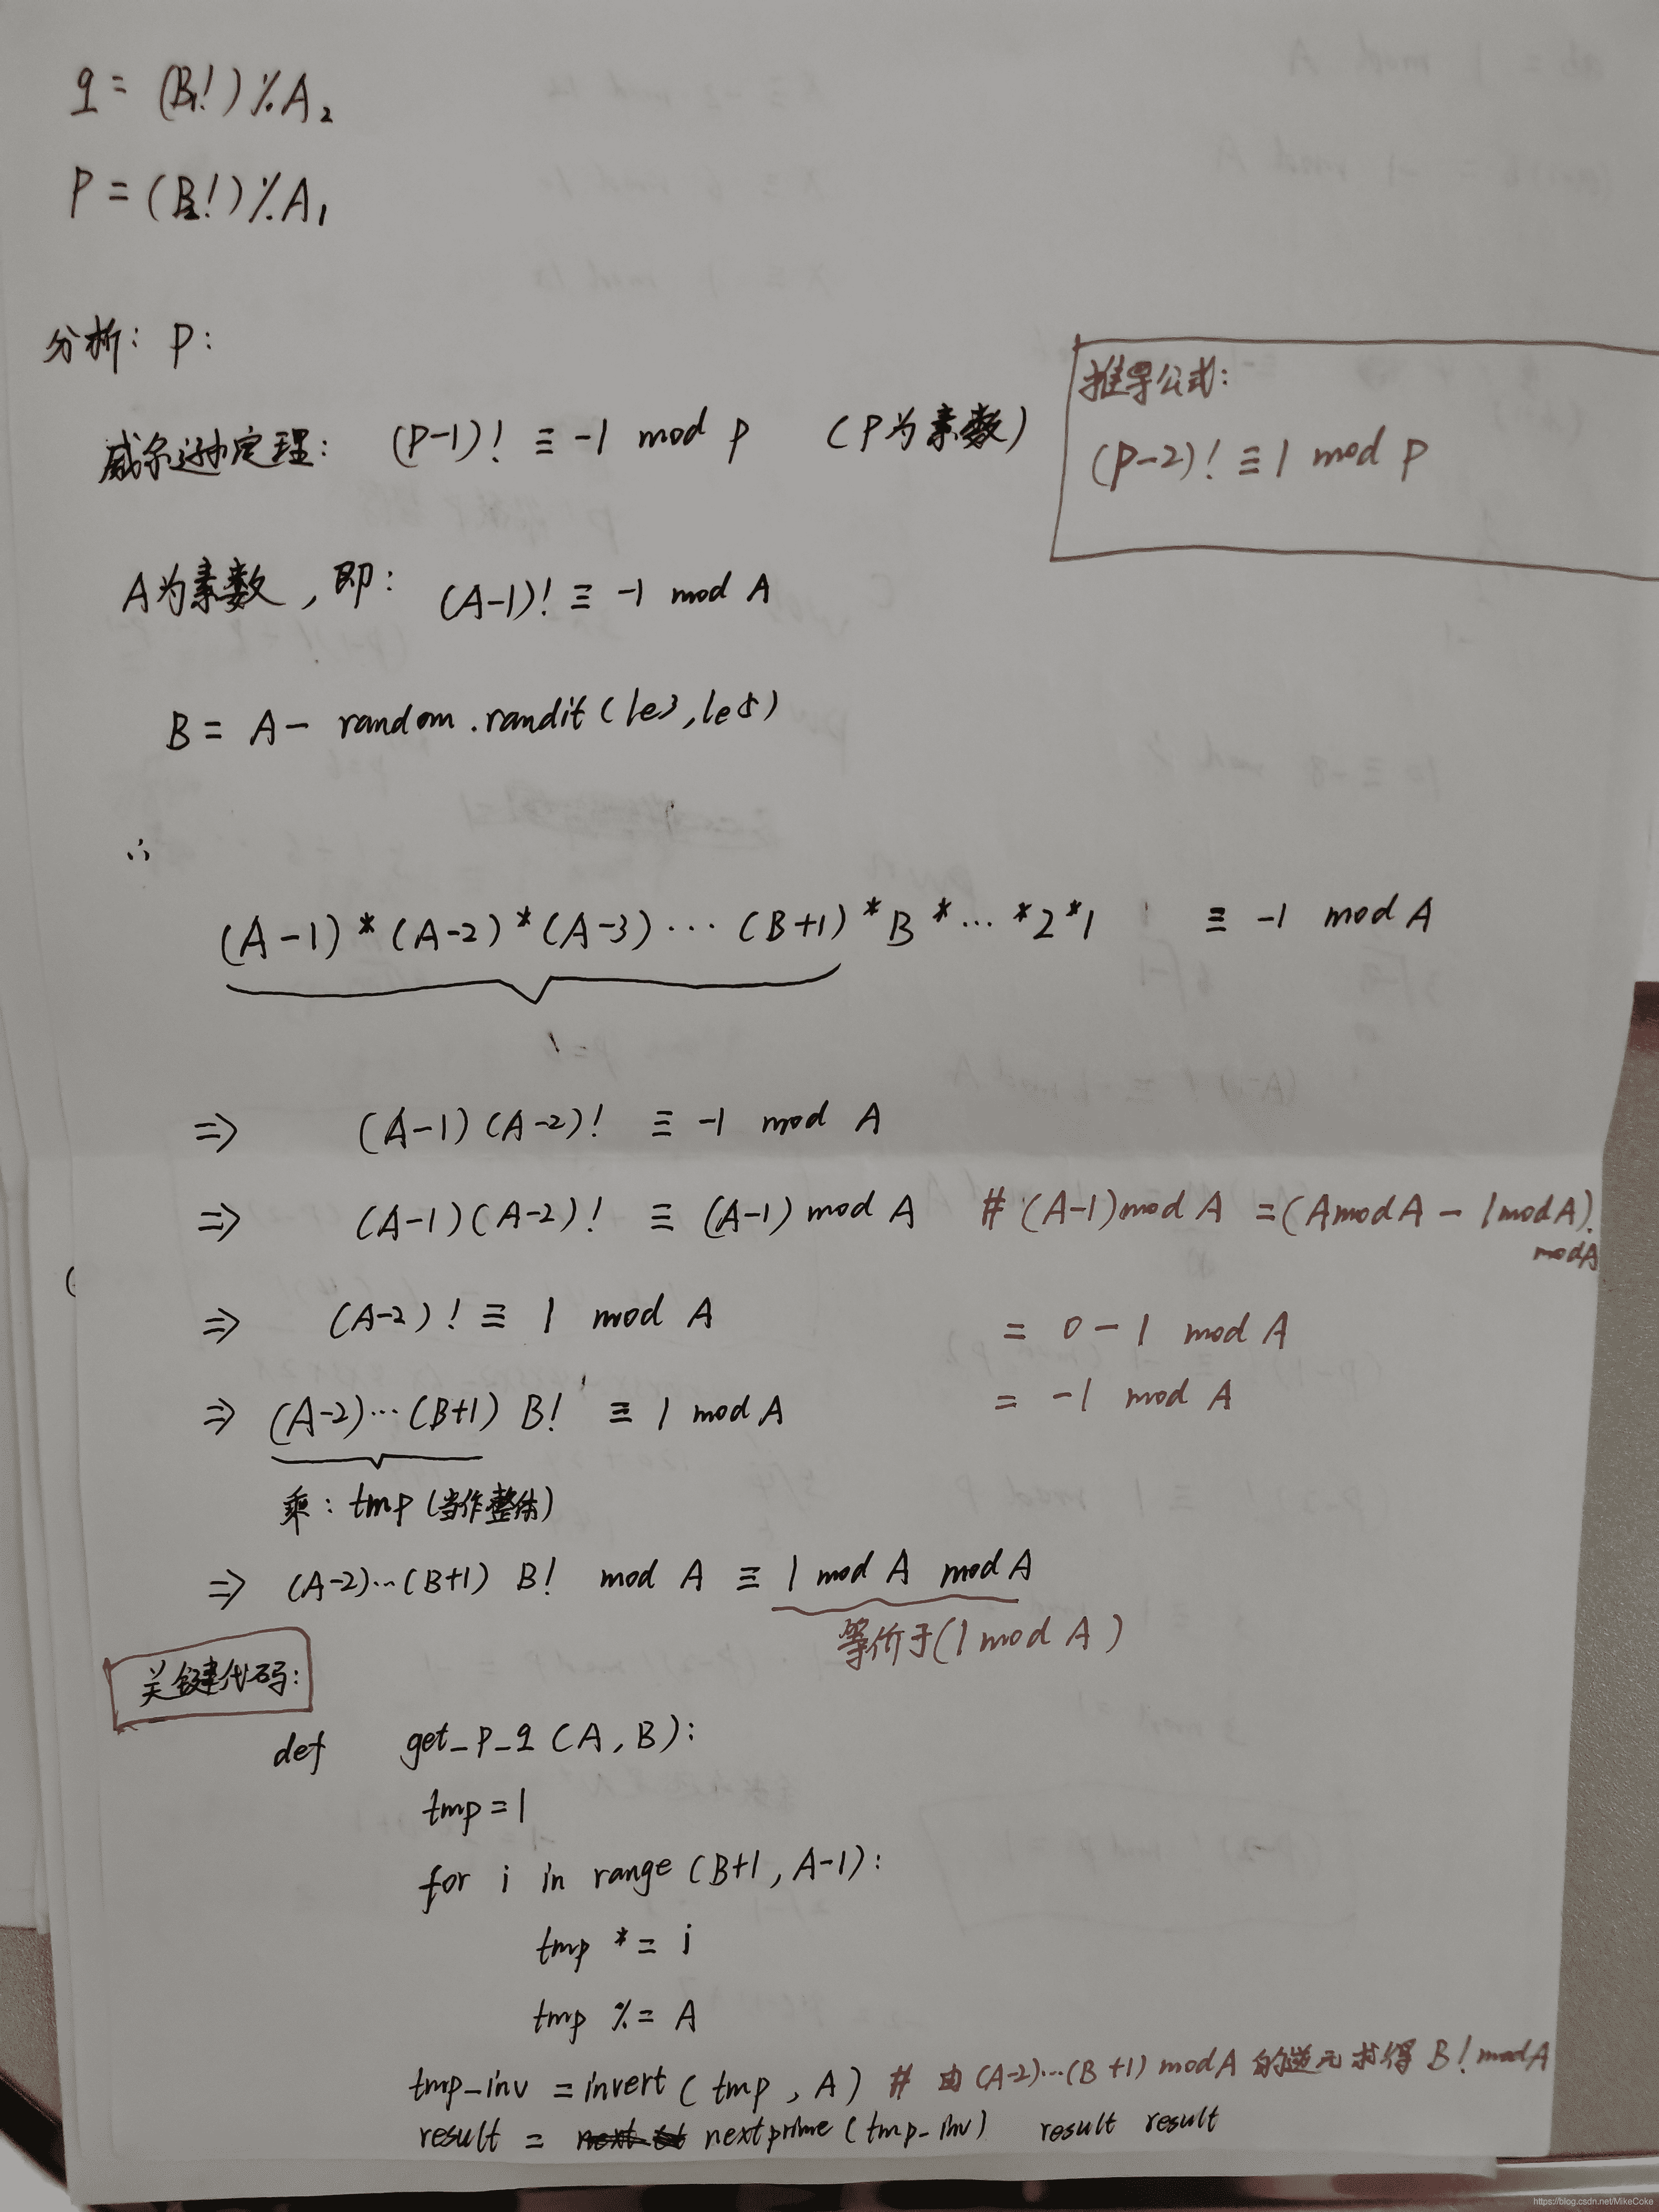 q = (B₁!) % A₂
P = (B₂!) % A₁
分析: P:
威尔逊定理: (P-1)! ≡ -1 mod P (P为素数)
推导公式:
(P-2)! ≡ 1 mod P
A为素数, 即: (A-1)! ≡ -1 mod A
B = A - random.randit(1e3,1e5)
∴
(A-1)*(A-2)*(A-3)...(B+1)*B*...*2*1 ≡ -1 mod A
⇒ (A-1)(A-2)! ≡ -1 mod A
⇒ (A-1)(A-2)! ≡ (A-1) mod A # (A-1) mod A = (A mod A - 1 mod A).
mod A
⇒ (A-2)! ≡ 1 mod A
= 0-1 mod A
= -1 mod A
⇒ (A-2)...(B+1) B! ≡ 1 mod A
乘: tmp (当作整体)
⇒ (A-2)...(B+1) B! mod A ≡ 1 mod A mod A
等价于(1 mod A)
关键代码:
def get_p_q(A, B):
tmp = 1
for i in range (B+1, A-1):
tmp *= i
tmp %= A
tmp_inv = invert(tmp, A) # 由(A-2)...(B+1) mod A 的逆元求得 B! mod A
result = nextprime(tmp_inv) result result
https://blog.csdn.net/MikeCoke